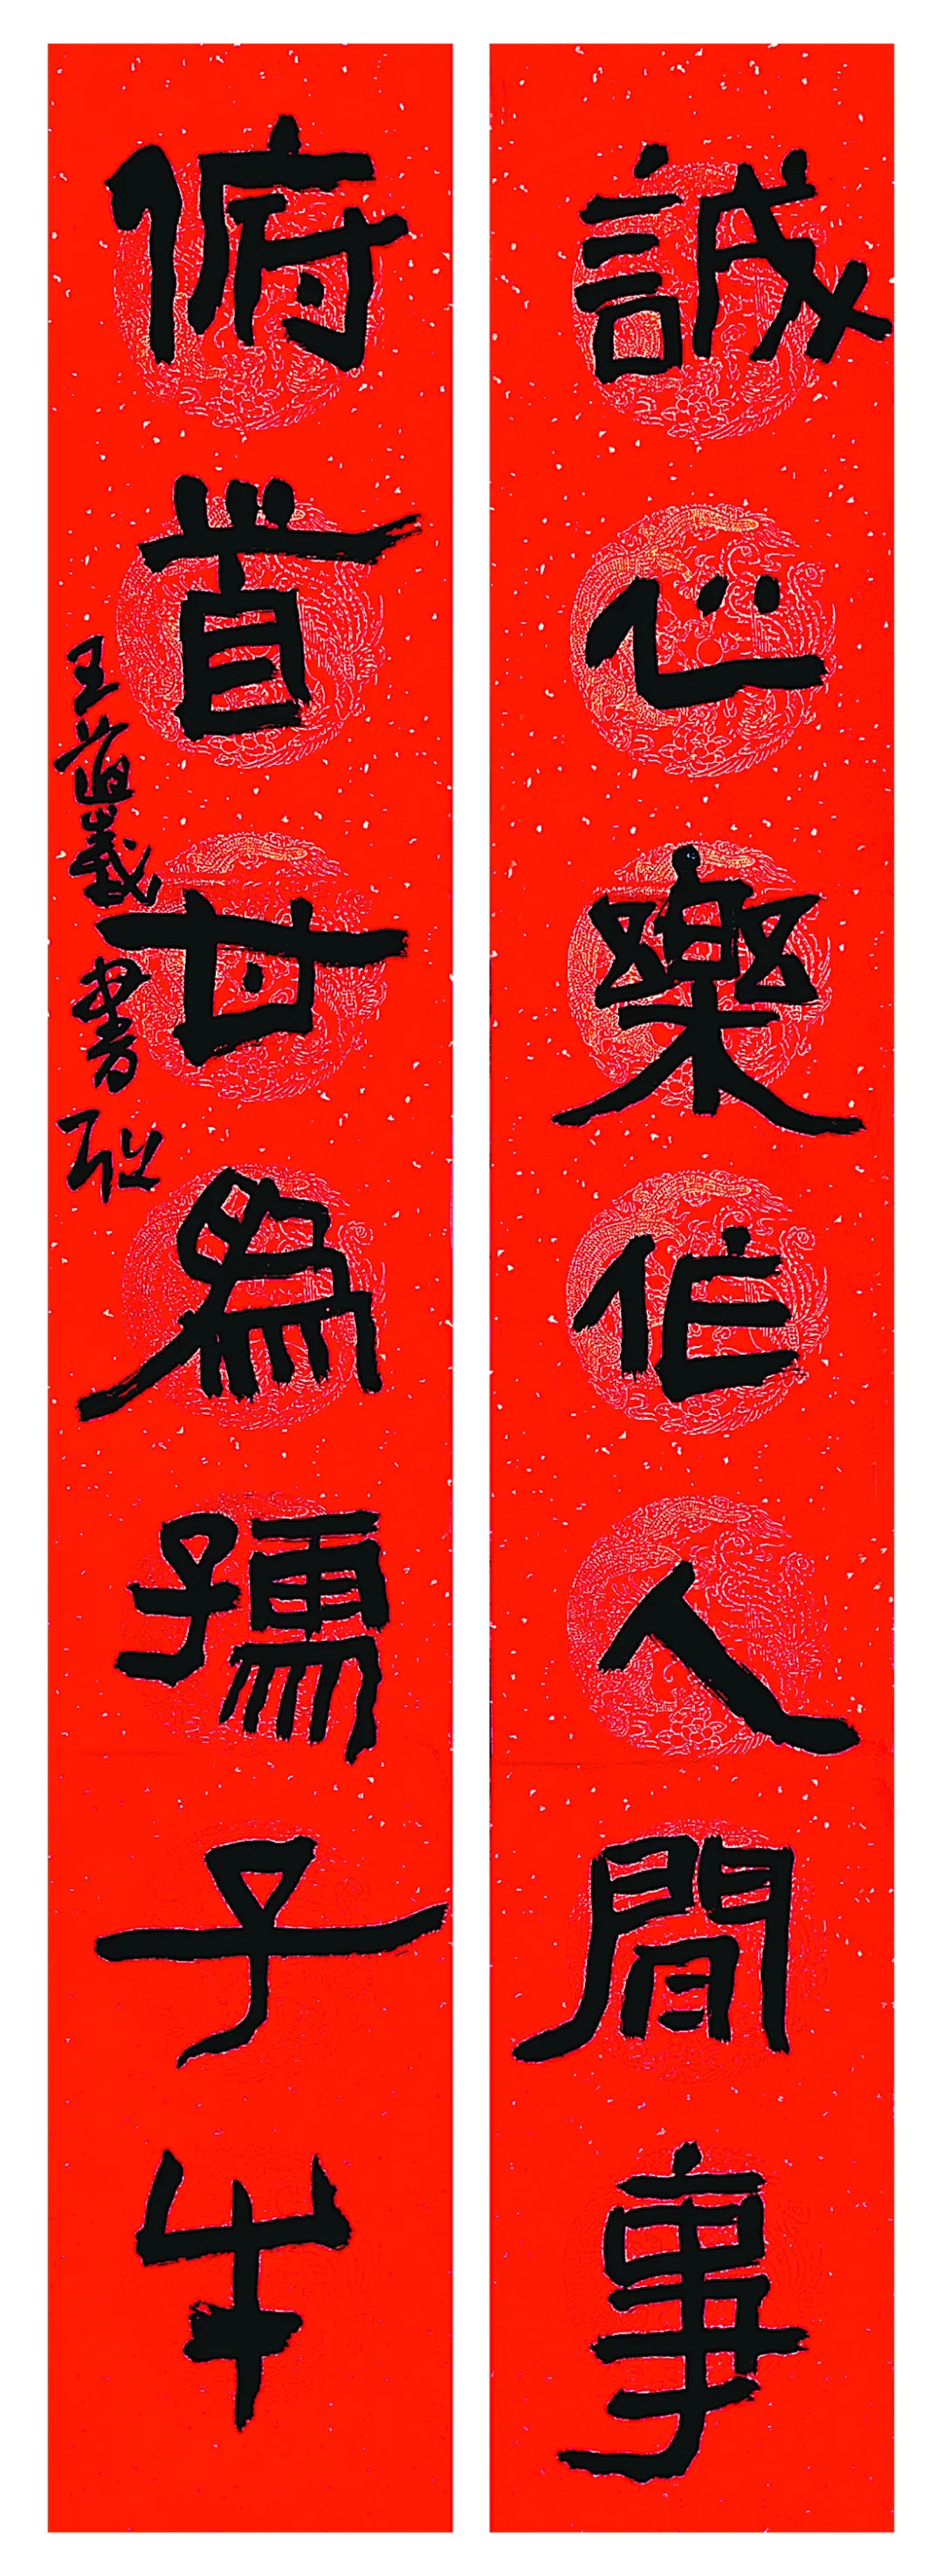 誠心樂作人間事
俯首甘爲孺子牛
王道義書